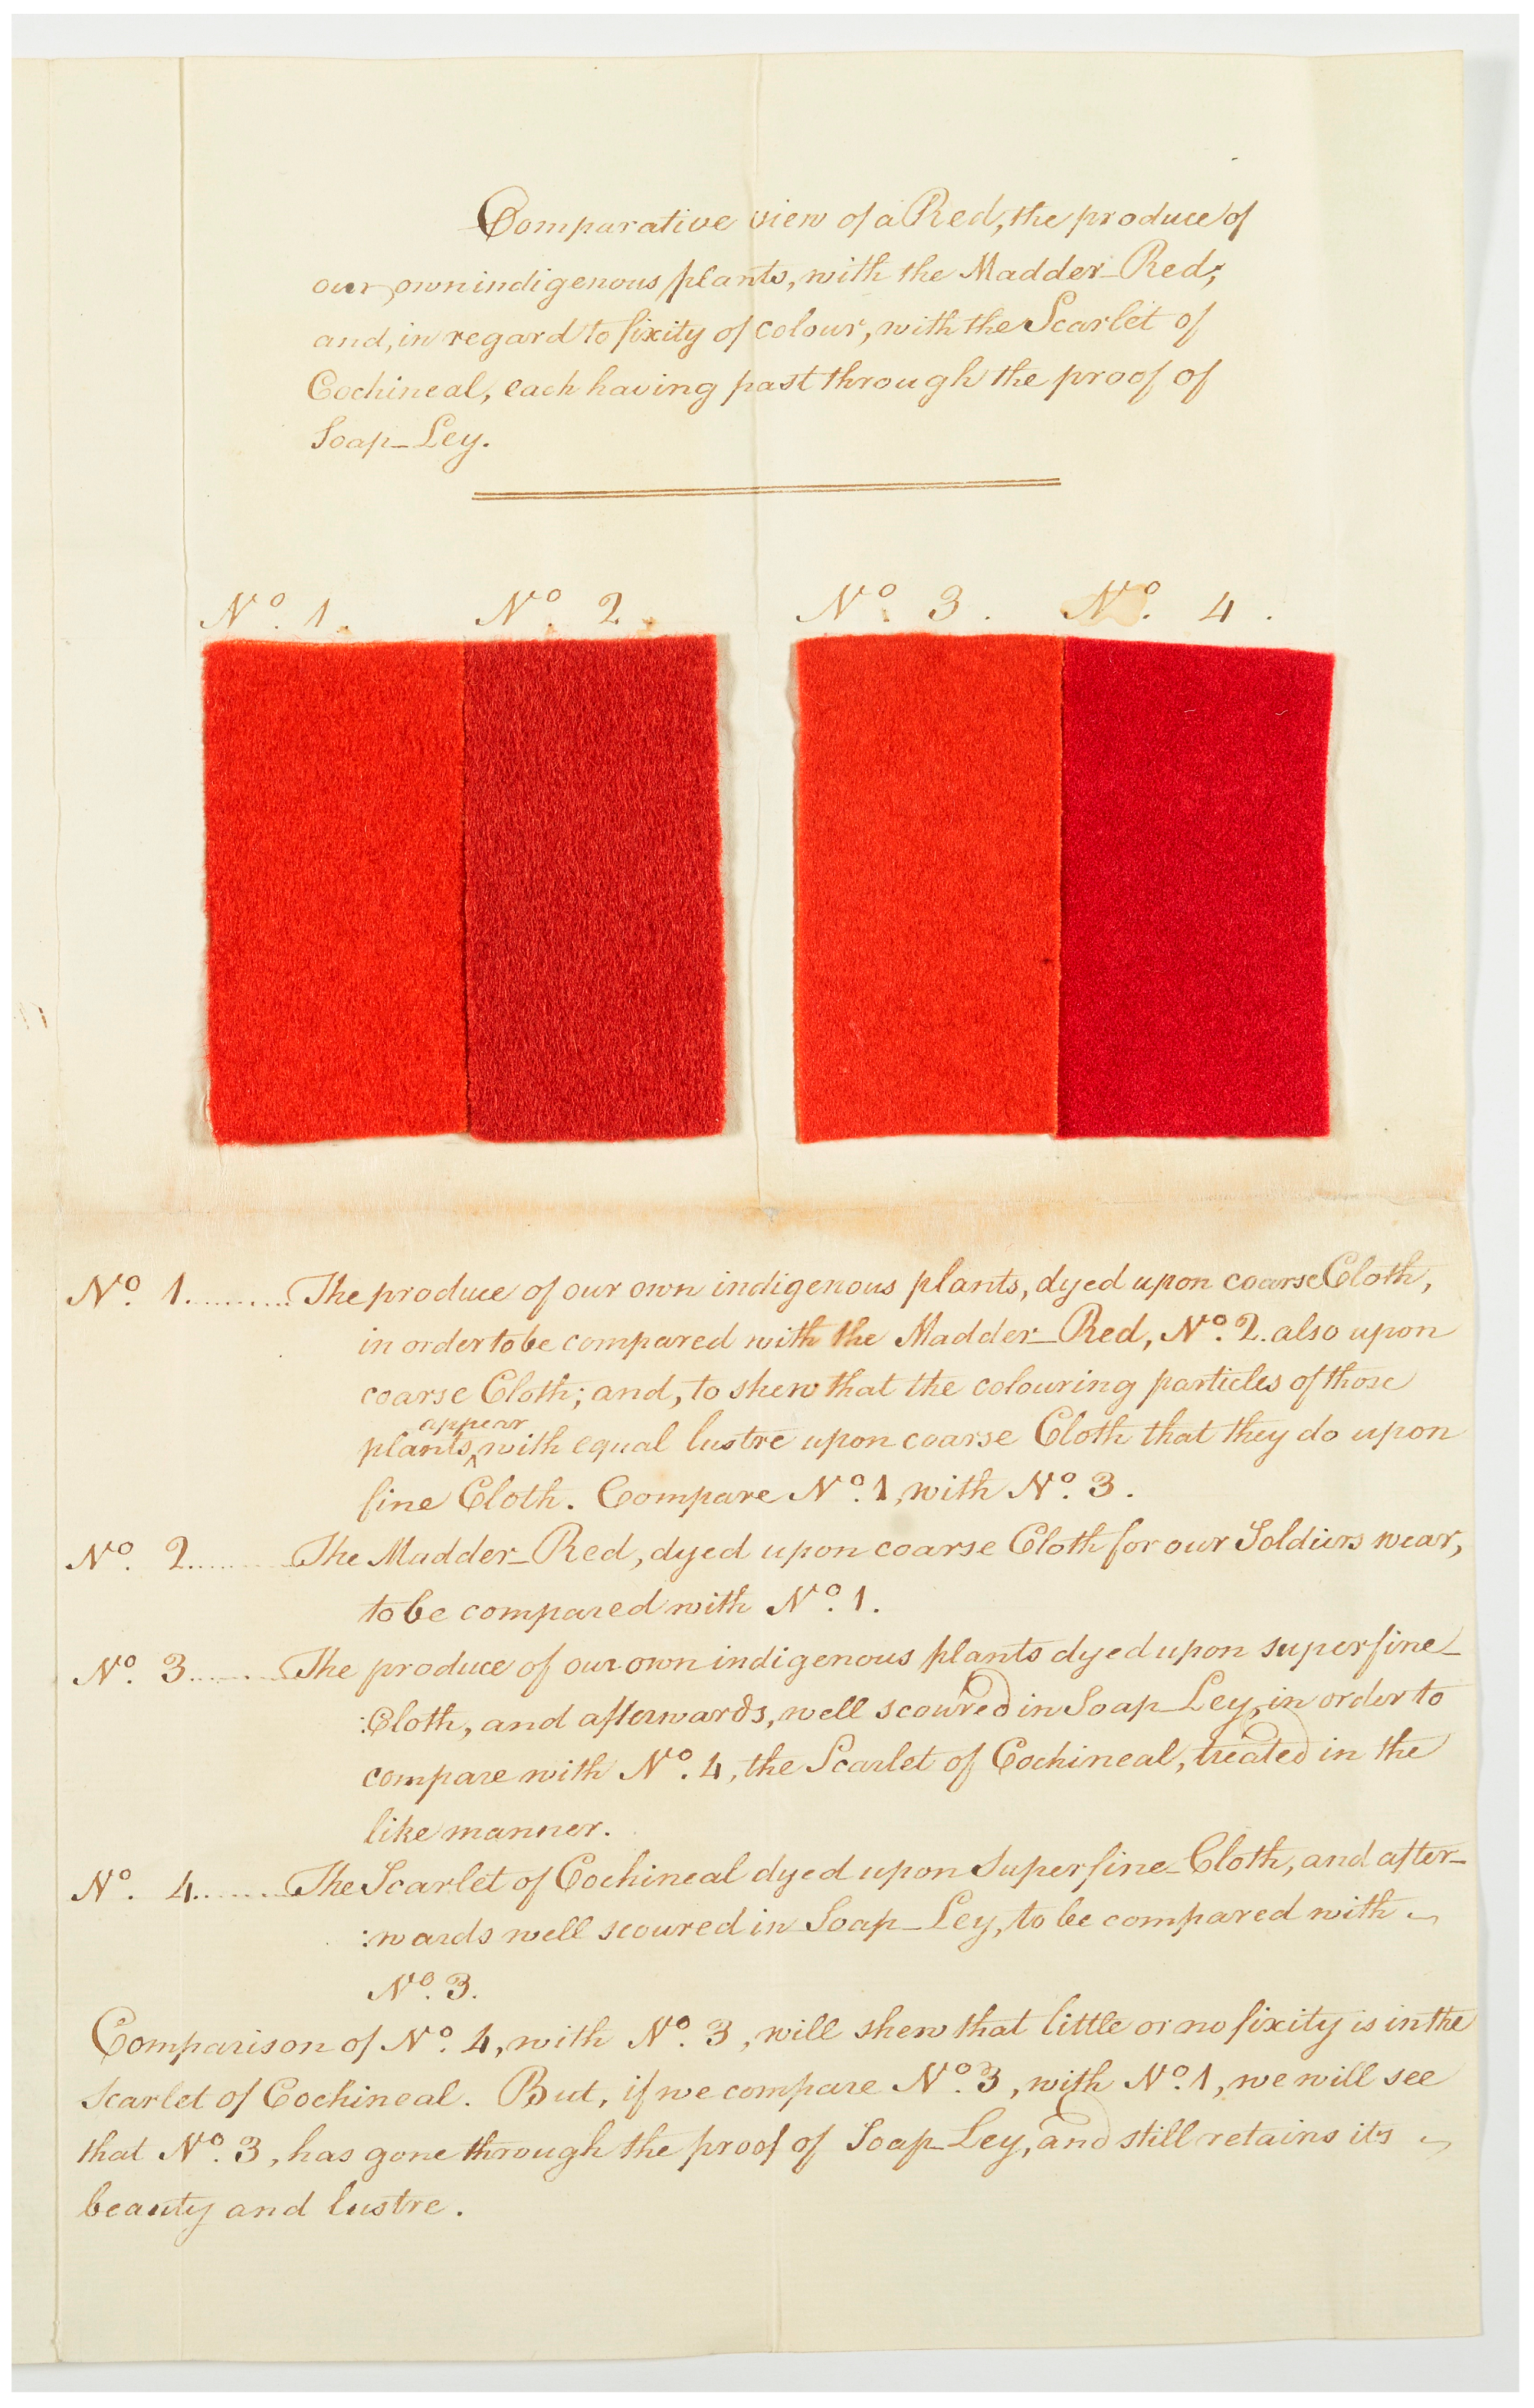 Comparative view of a Red, the produce of
our own indigenous plants, with the Madder-Red;
and, in regard to fixity of colour, with the Scarlet of
Cochineal, each having past through the proof of
Soap-Ley.
No. 1. No. 2.
No. 3. No. 4.
No. 1.......... The produce of our own indigenous plants, dyed upon coarse Cloth,
in order to be compared with the Madder-Red, No. 2. also upon
coarse Cloth; and, to shew that the colouring particles of those
appear
plants, with equal lustre upon coarse Cloth that they do upon
fine Cloth. Compare No. 1, with No. 3.
No. 2.......... The Madder-Red, dyed upon coarse Cloth for our Soldiers wear,
to be compared with No. 1.
No. 3.......... The produce of our own indigenous plants dyed upon superfine-
:Cloth, and afterwards, well scoured in Soap-Ley, in order to
compare with No. 4, the Scarlet of Cochineal, treated in the
like manner.
No. 4.......... The Scarlet of Cochineal dyed upon Superfine-Cloth, and after-
:wards well scoured in Soap-Ley, to be compared with
No. 3.
Comparison of No. 4, with No. 3, will shew that little or no fixity is in the
Scarlet of Cochineal. But, if we compare No. 3, with No. 1, we will see
that No. 3, has gone through the proof of Soap-Ley, and still retains its
beauty and lustre.